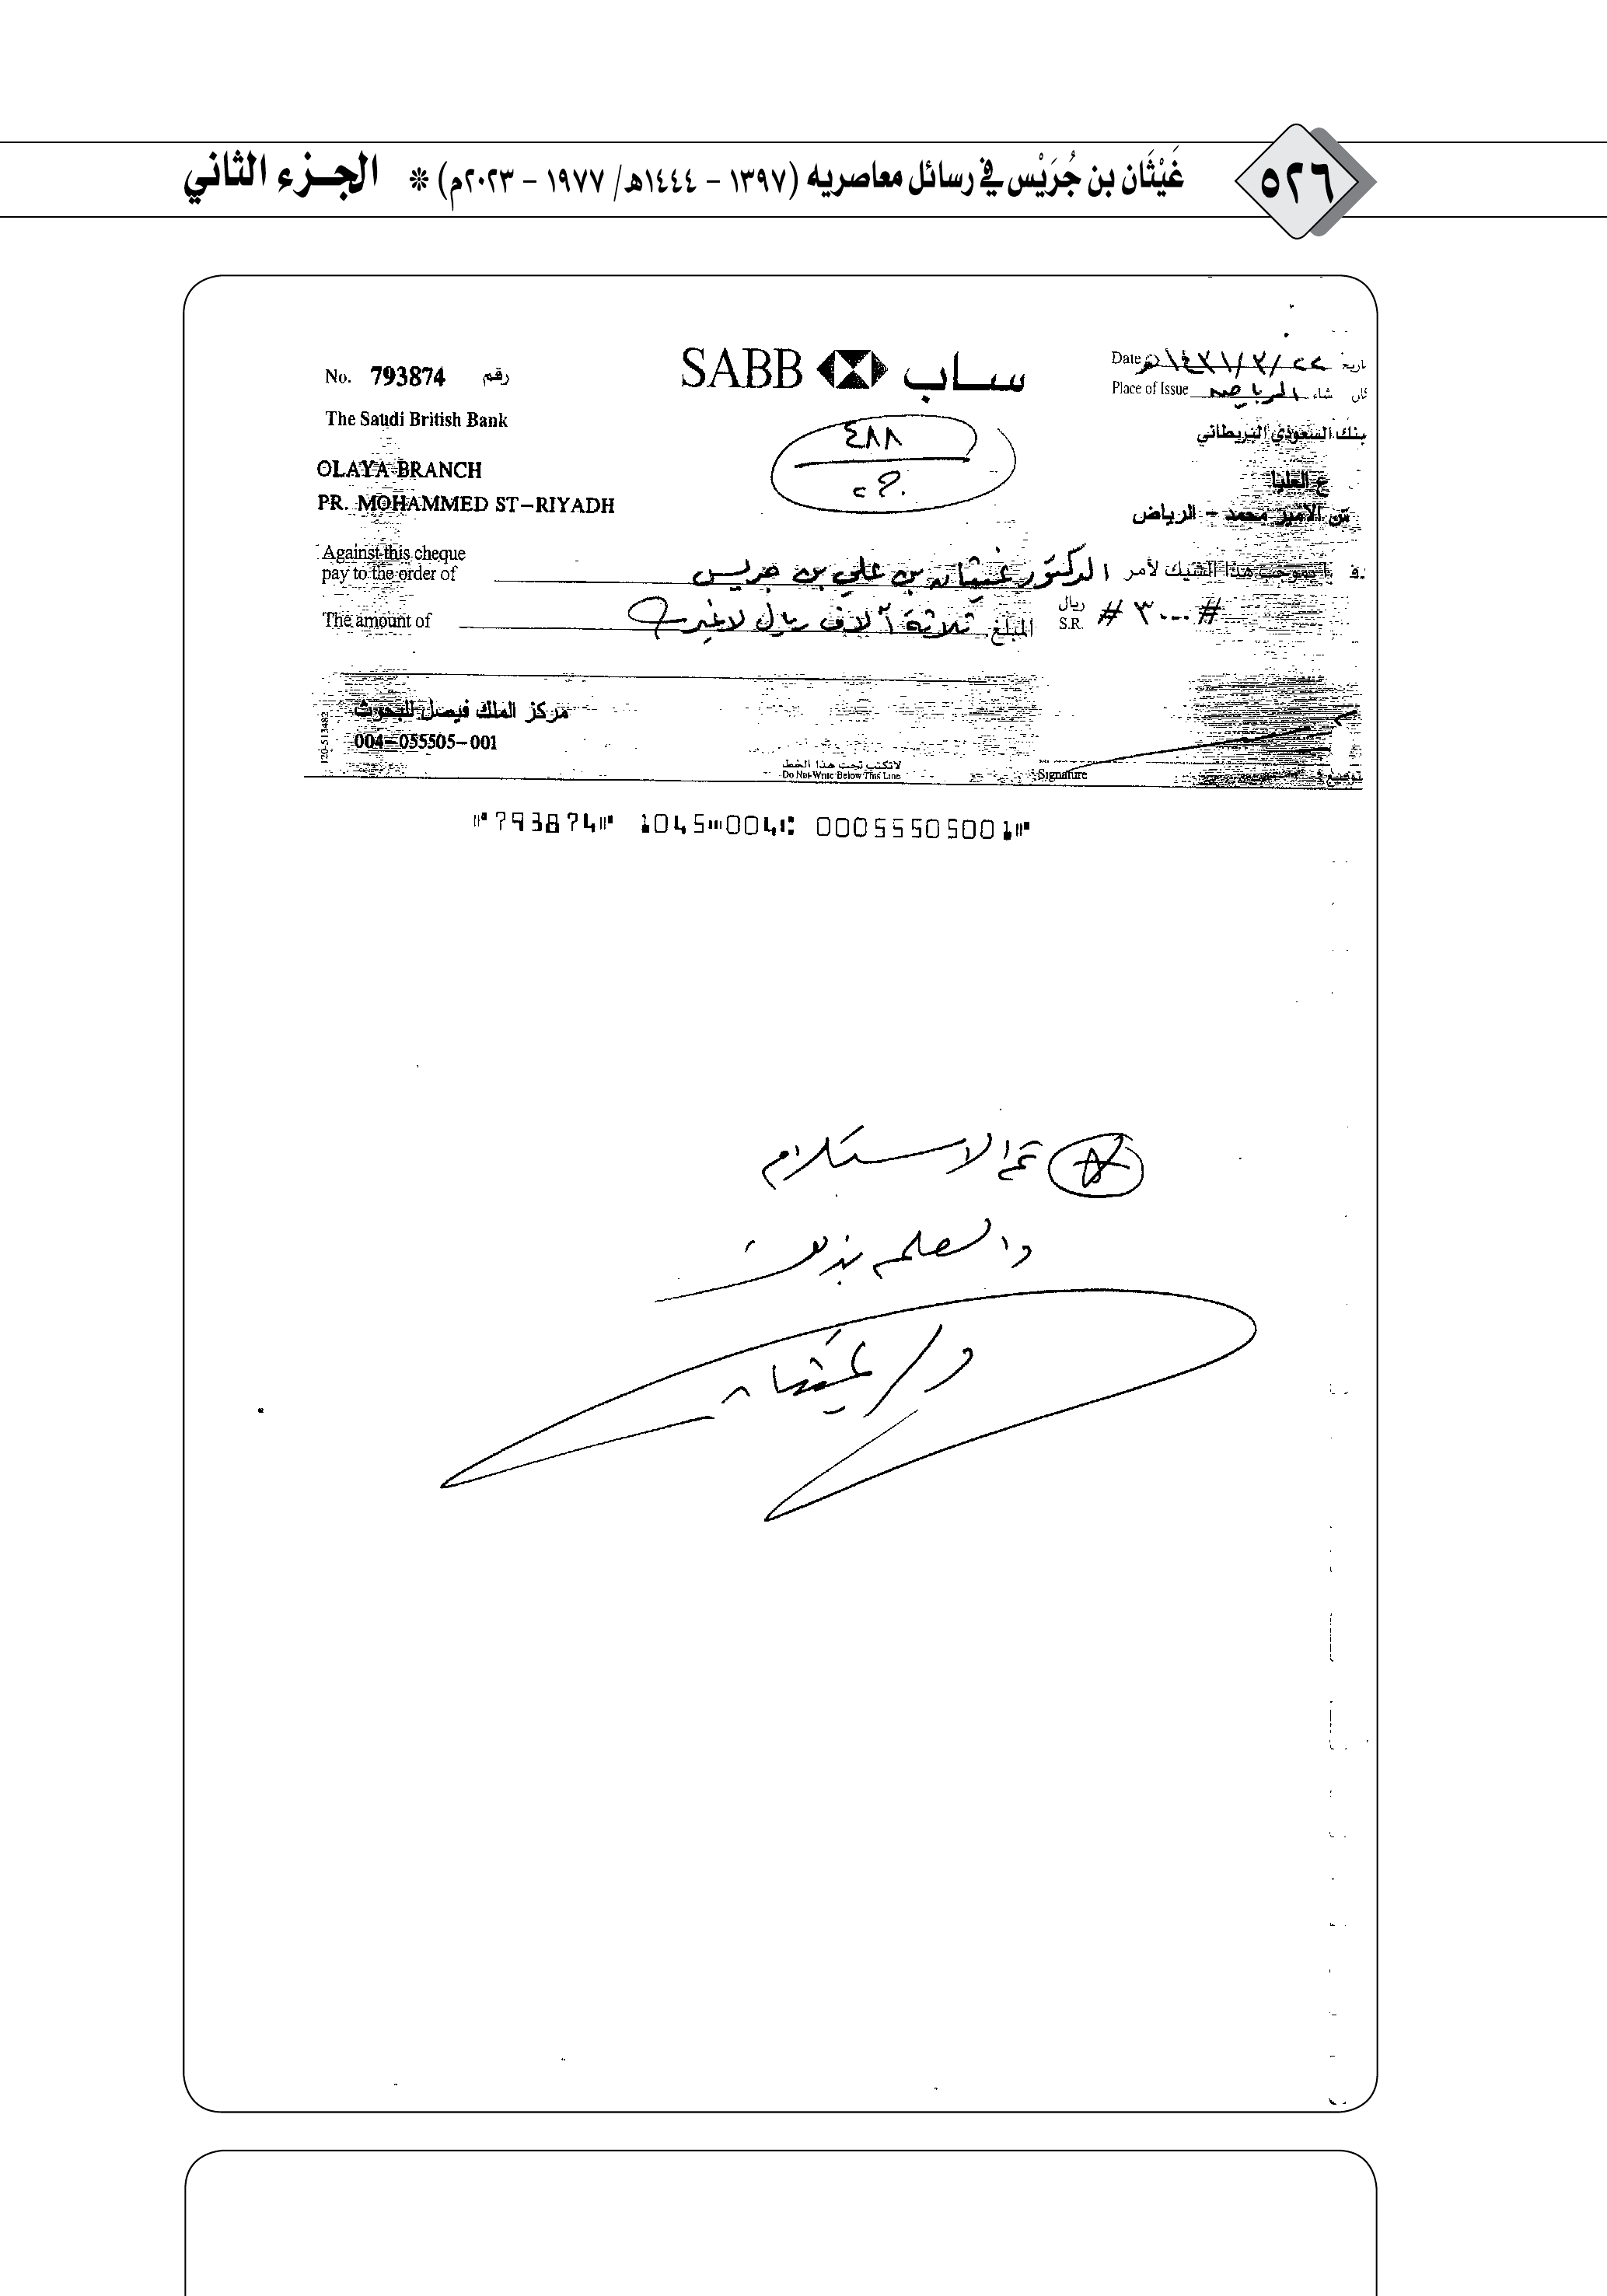 ٥٢٦
غَيْثَان بن جُرَيْس في رسائل معاصريه (١٣٩٧ - ١٤٤٤هـ/ ١٩٧٧ - ٢٠٢٣م) * الجزء الثاني
No. 793874 رقم
SABB ساب
Date ١٤٣١/٣/٢٢هـ
Place of Issue الرياض
The Saudi British Bank
بنك السعودي البريطاني
٤٨٨
OLAYA BRANCH
ع العليا
PR. MOHAMMED ST-RIYADH
الأمير محمد - الرياض
Against this cheque
pay to the order of
بموجب هذا الشيك لأمر الدكتور غيثان بن علي بن جريس
The amount of
المبلغ ثلاثة آلاف ريال لا غير
ريال
S.R. # ٣٠٠٠ #
مركز الملك فيصل للبحوث
004-055505-001
120-513482
لاتكتب تحت هذا الخط
Do Not Write Below This Line
Signature
توقيع
793874 1045 004 000555050 01
تم الاستلام
والعلم بذلك
د/ غيثان